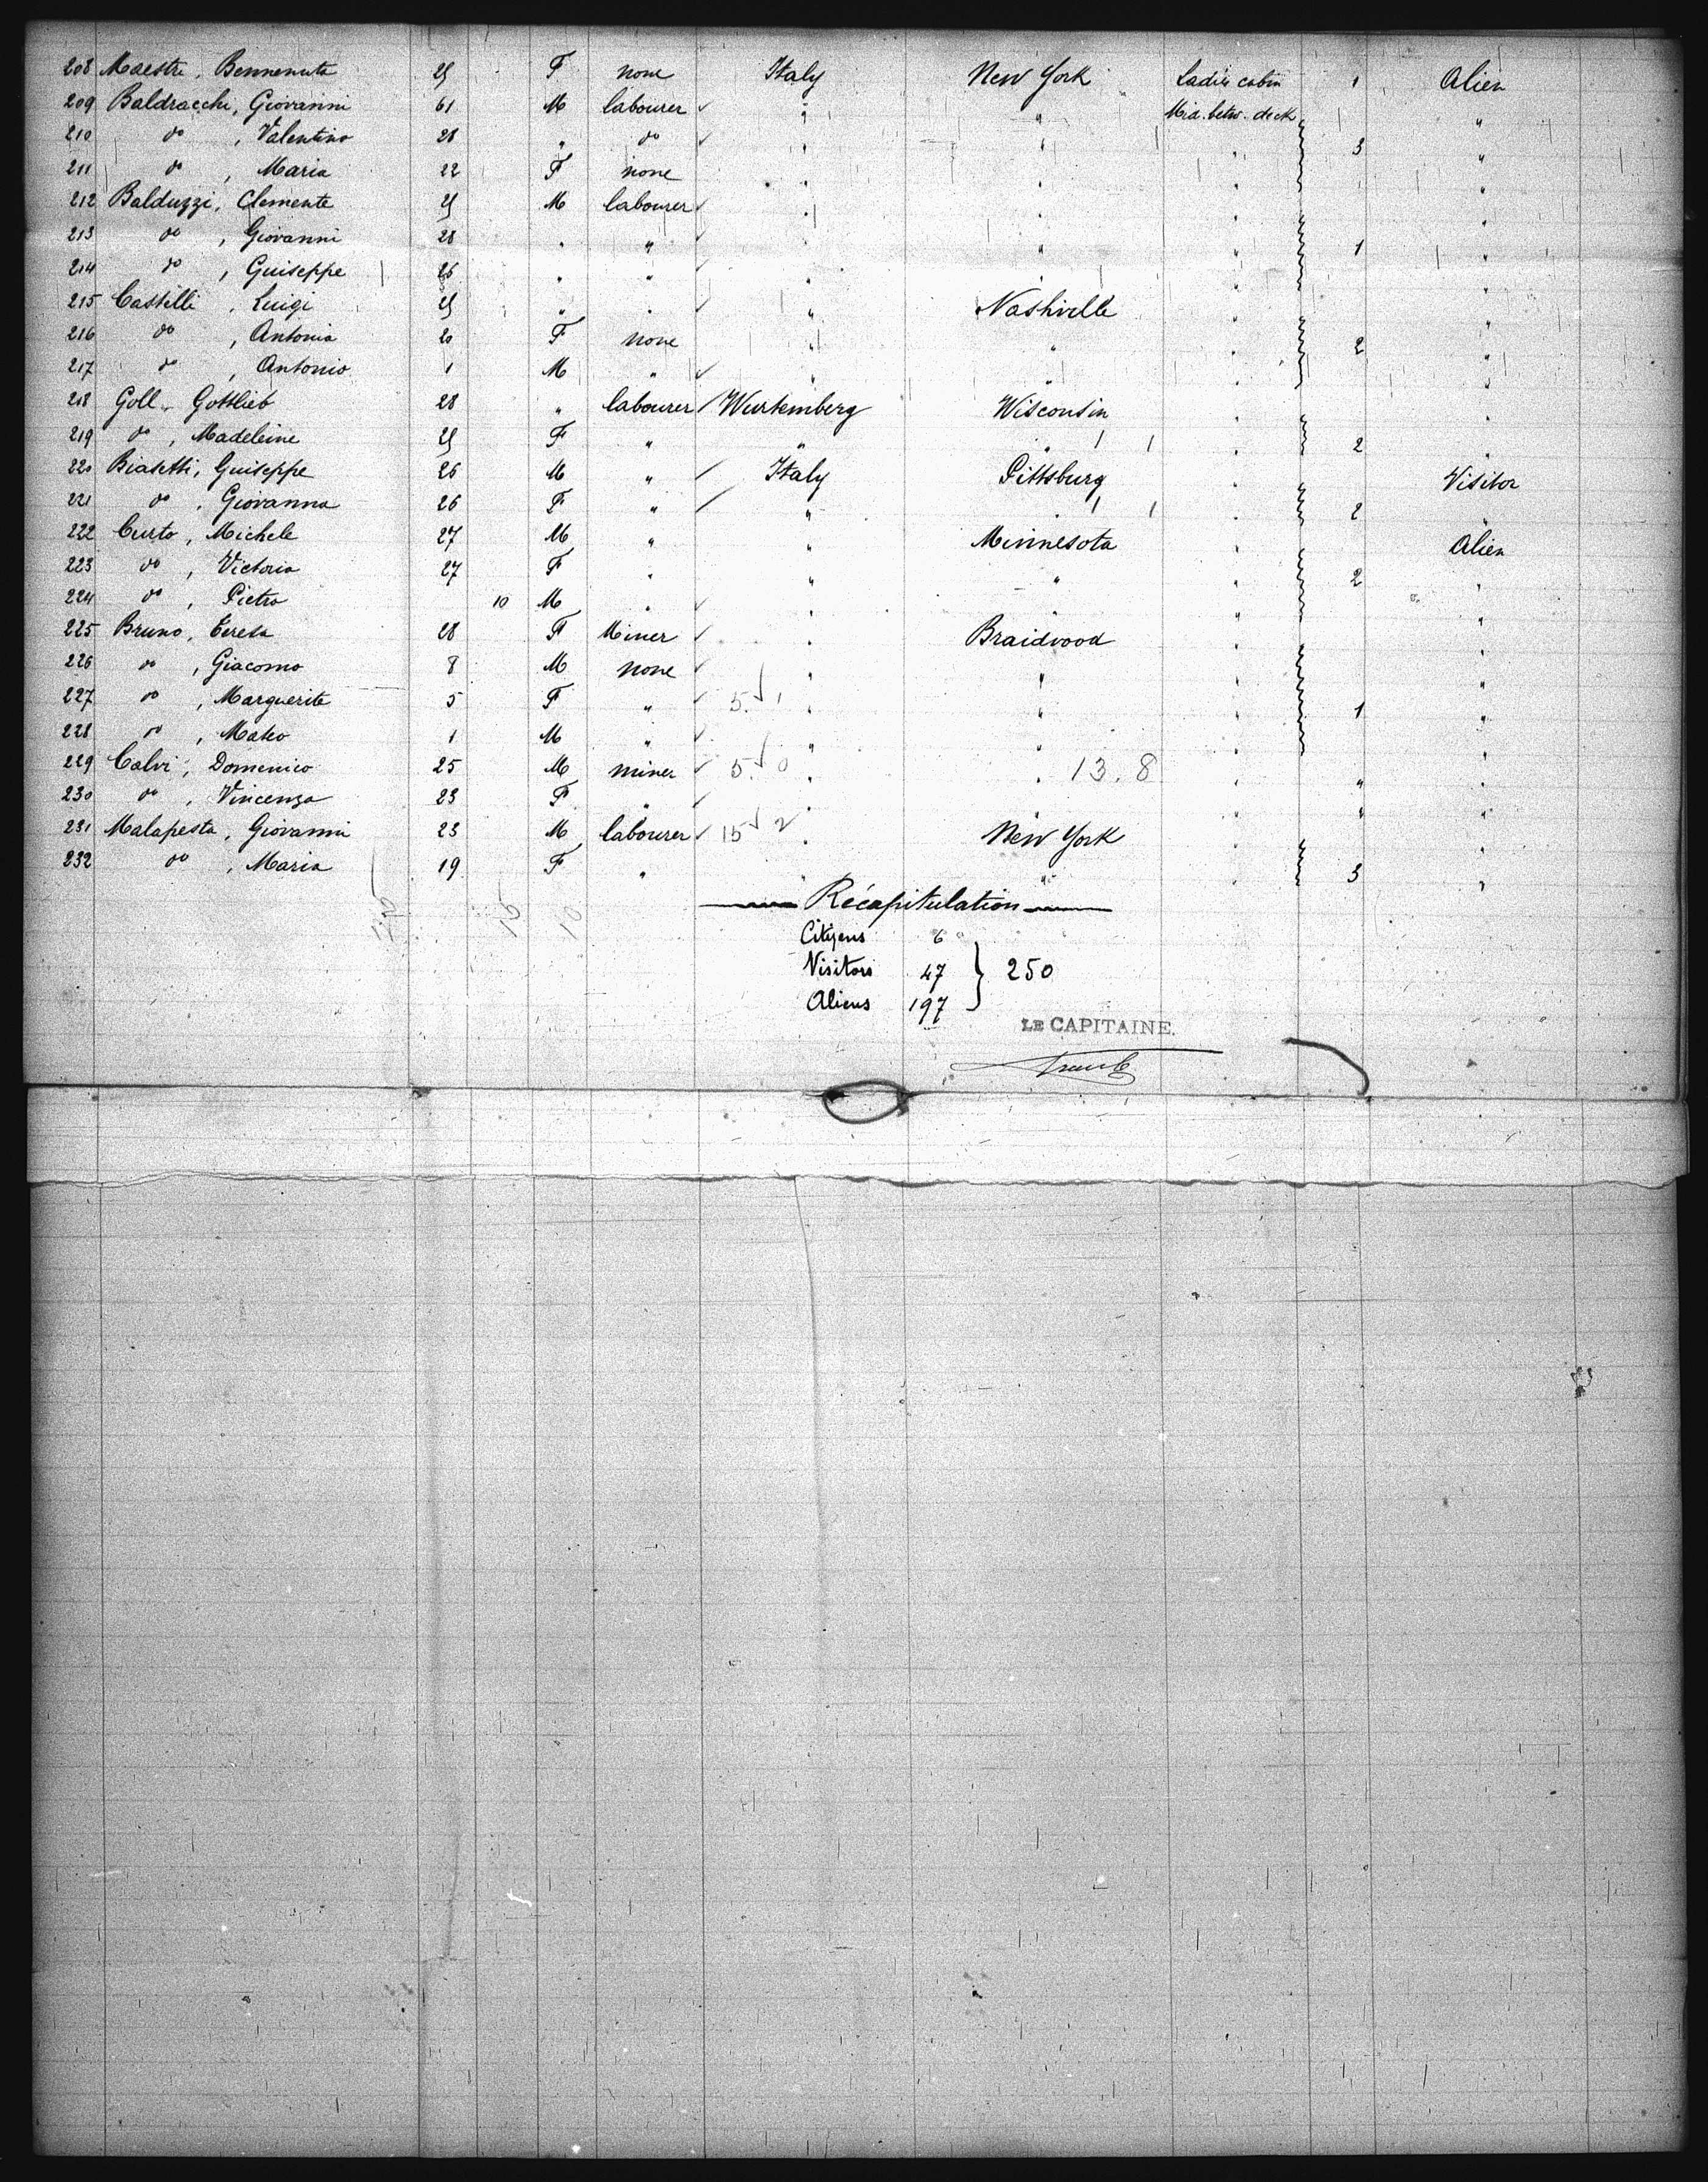 208 Maestri, Bennenuta 25 F none Italy New York Ladies cabin 1 Alien
209 Baldracchi, Giovanni 61 M labourer " " Mid. betw. deck "
210 do, Valentino 28 " do " " " 3 "
211 do, Maria 22 F none " " " "
212 Balduzzi, Clemente 25 M labourer " " " "
213 do, Giovanni 28 " " " " " 1 "
214 do, Guiseppe 26 " " " " " "
215 Castelli, Luigi 25 " " " Nashville " "
216 do, Antonia 20 F none " " " 2 "
217 do, Antonio 1 M " " " " "
218 Goll, Gottlieb 28 " labourer Wurtemberg Wisconsin " "
219 do, Madeleine 25 F " " " " 2 "
220 Biasetti, Guiseppe 26 M " Italy Pittsburg " Visitor
221 do, Giovanna 26 F " " " " 2 "
222 Curto, Michele 27 M " " Minnesota " Alien
223 do, Victoria 27 F " " " " 2 "
224 do, Pietro 10 M " " " "
225 Bruno, Teresa 28 F Miner " Braidwood " "
226 do, Giacomo 8 M none " " " "
227 do, Marguerite 5 F " 5. 1 " " " 1 "
228 do, Mateo 1 M " " " " "
229 Calvi, Domenico 25 M miner 5. 0 " " 13.8 " " "
230 do, Vincenza 23 F " " " " " "
231 Malapesta, Giovanni 23 M labourer 15 2 " New York " "
232 do, Maria 19 F " " " " 3 "
Récapitulation
Citizens 6
Visitors 47 } 250
Aliens 197
LE CAPITAINE.